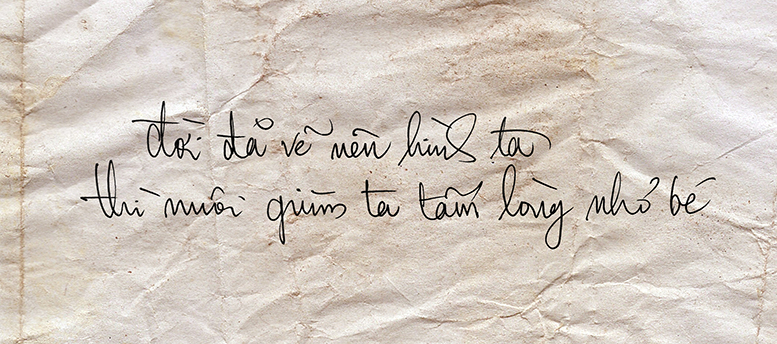 đời đã vẽ nên hình ta
thì nuôi giùm ta tấm lòng nhỏ bé